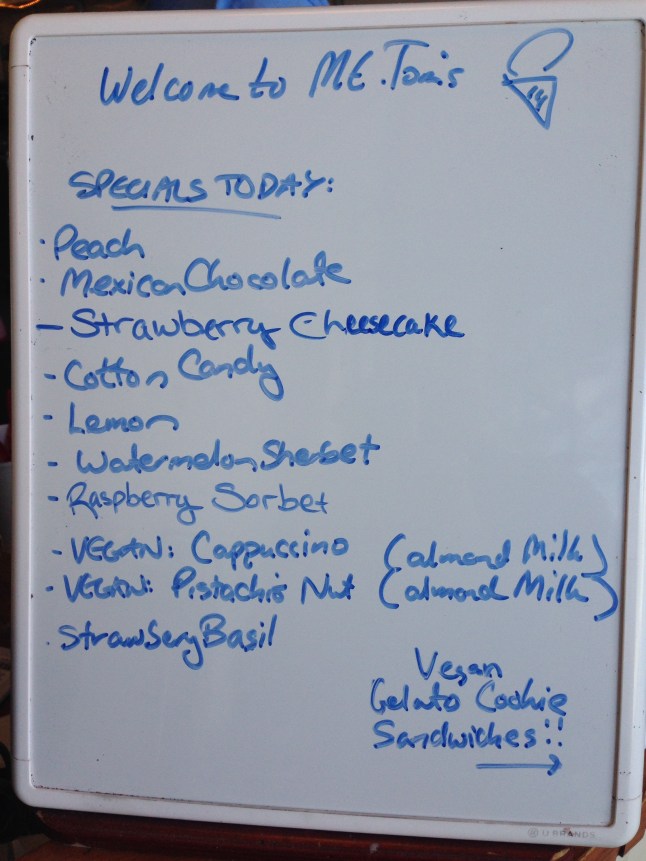 Welcome to M.E. Tom's
SPECIALS TODAY:
· Peach
· Mexican Chocolate
- Strawberry Cheesecake
- Cotton Candy
- Lemon
- Watermelon Sherbet
- Raspberry Sorbet
- VEGAN: Cappuccino (almond Milk)
· VEGAN: Pistachio Nut (almond Milk)
· Strawbery Basil
Vegan
Gelato Cookie
Sandwiches!!
U BRANDS